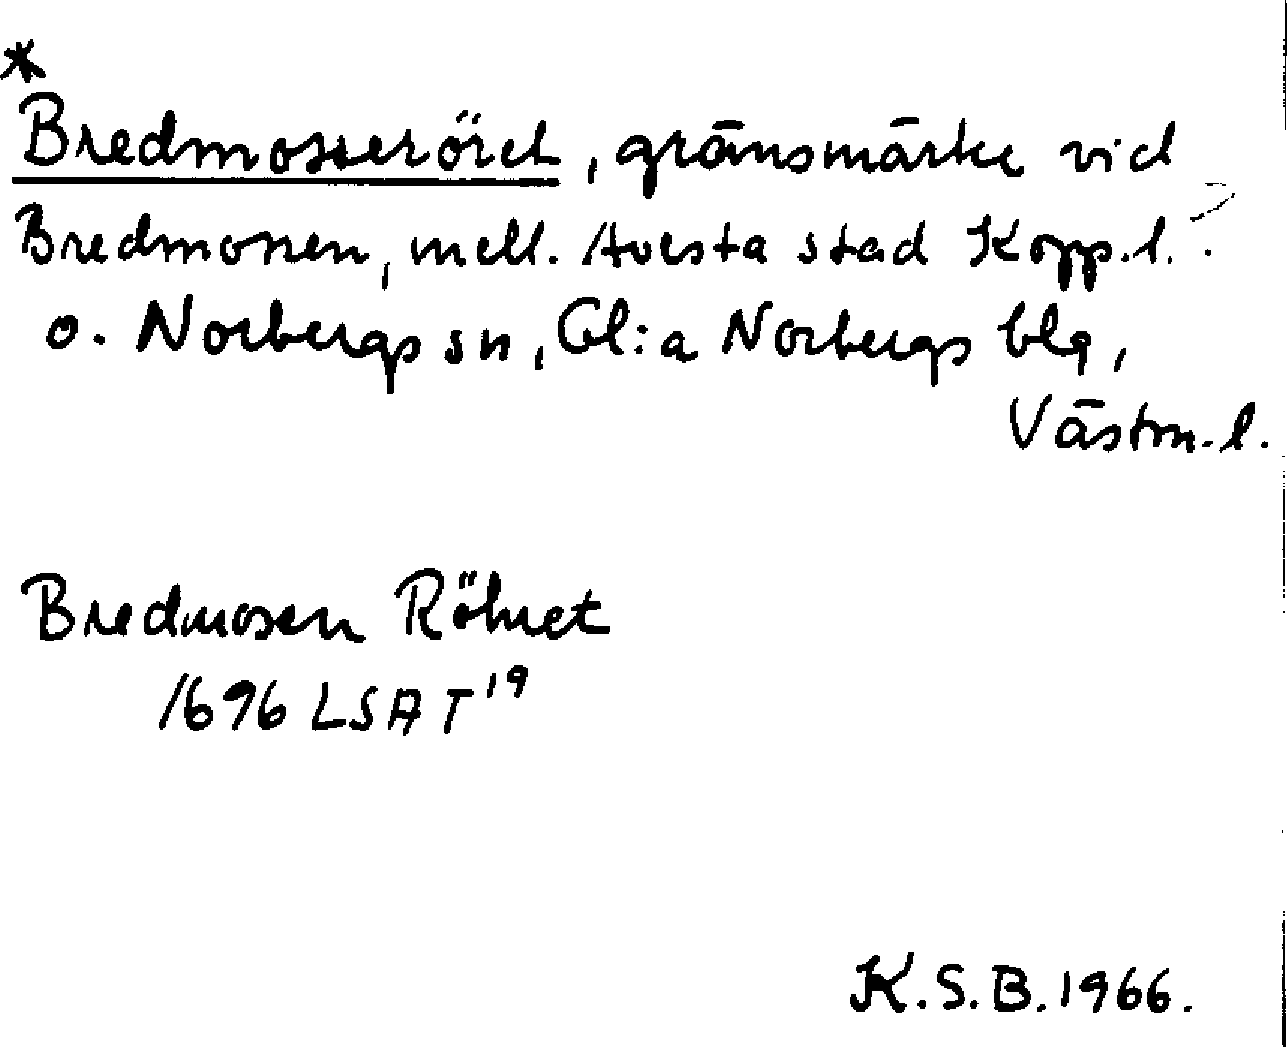 *
Bredmosseröret, gränsmärke vid
Bredmossen, mell. Avesta stad Kopp.l.
o. Norbergs sn, Gl:a Norbergs blg,
Västm.l.
Bredmosen Röhret
1696 LSA T¹⁹
K.S.B. 1966.